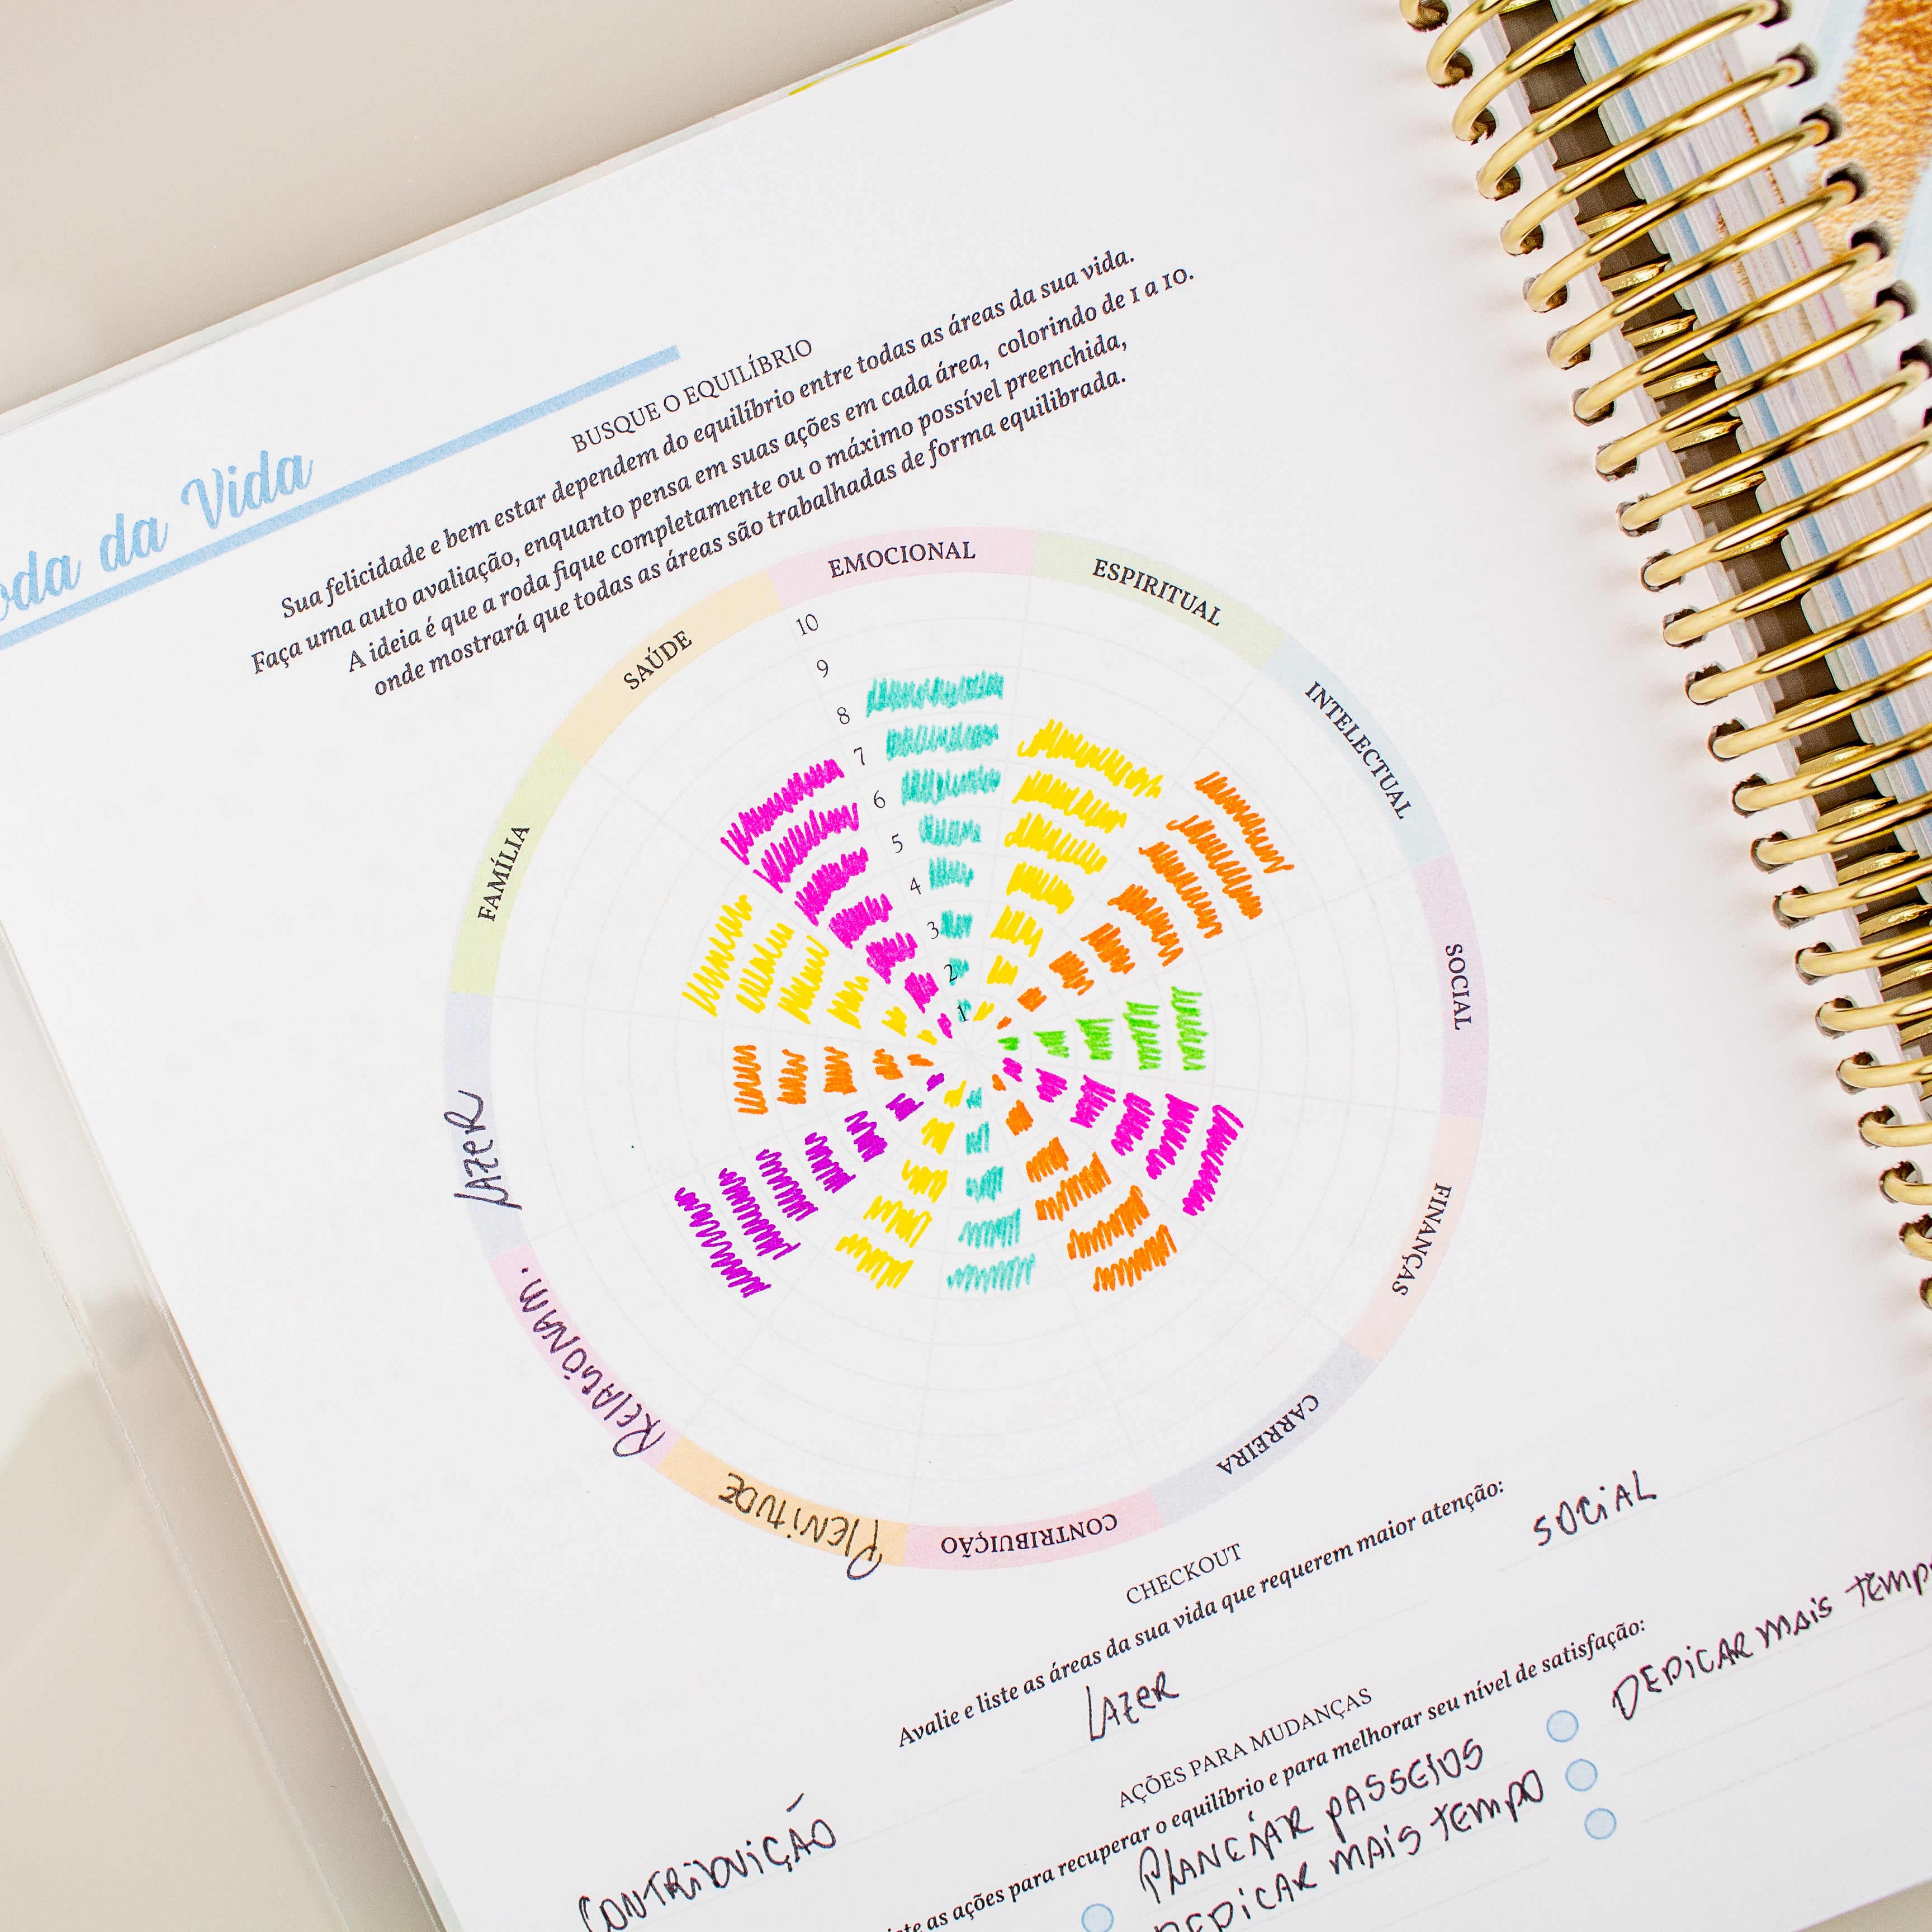 da Vida
BUSQUE O EQUILÍBRIO
Sua felicidade e bem estar dependem do equilíbrio entre todas as áreas da sua vida.
Faça uma auto avaliação, enquanto pensa em suas ações em cada área, colorindo de 1 a 10.
A ideia é que a roda fique completamente ou o máximo possível preenchida,
onde mostrará que todas as áreas são trabalhadas de forma equilibrada.
EMOCIONAL
ESPIRITUAL
INTELECTUAL
SOCIAL
FINANÇAS
CARREIRA
CONTRIBUIÇÃO
PLENITUDE
RELACIONAM.
LAZER
FAMÍLIA
SAÚDE
10
9
8
7
6
5
4
3
2
1
CHECKOUT
Avalie e liste as áreas da sua vida que requerem maior atenção:
CONTRIBUIÇÃO
LAZER
SOCIAL
AÇÕES PARA MUDANÇAS
as ações para recuperar o equilíbrio e para melhorar seu nível de satisfação:
PLANEJAR PASSEIOS
DEDICAR MAIS TEMPO
DEDICAR MAIS